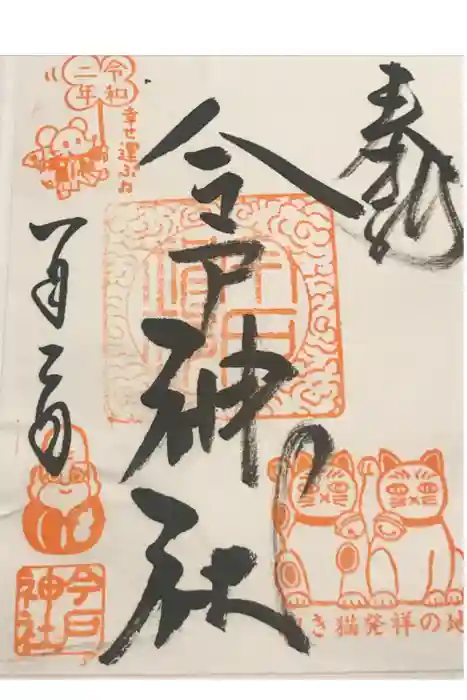 奉拝
今戸神社
令和
二年
幸せ運ぶね
一月二日
今戸
神社
き猫発祥の地